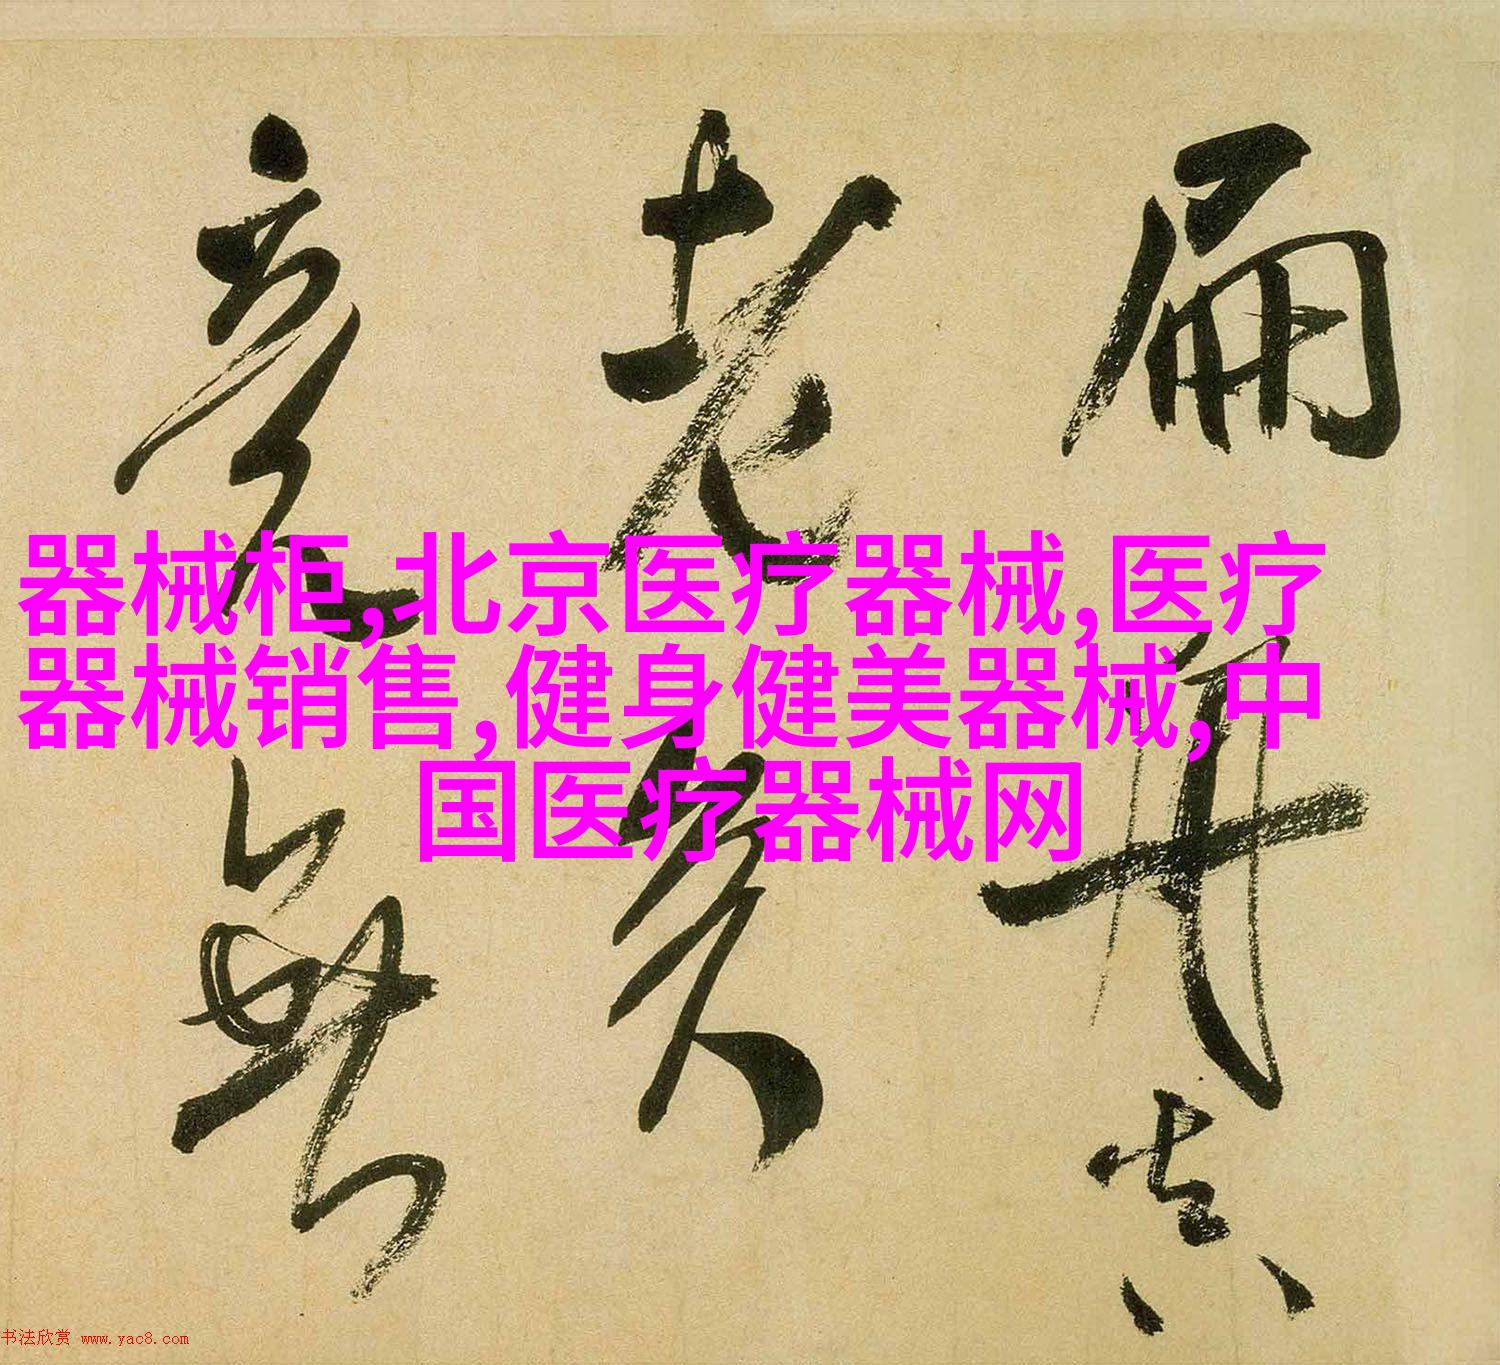 器械柜,北京医疗器械,医疗
器械销售,健身健美器械,中
国医疗器械网
扁舟真
老矣
竟無
书法欣赏 www.yac8.com